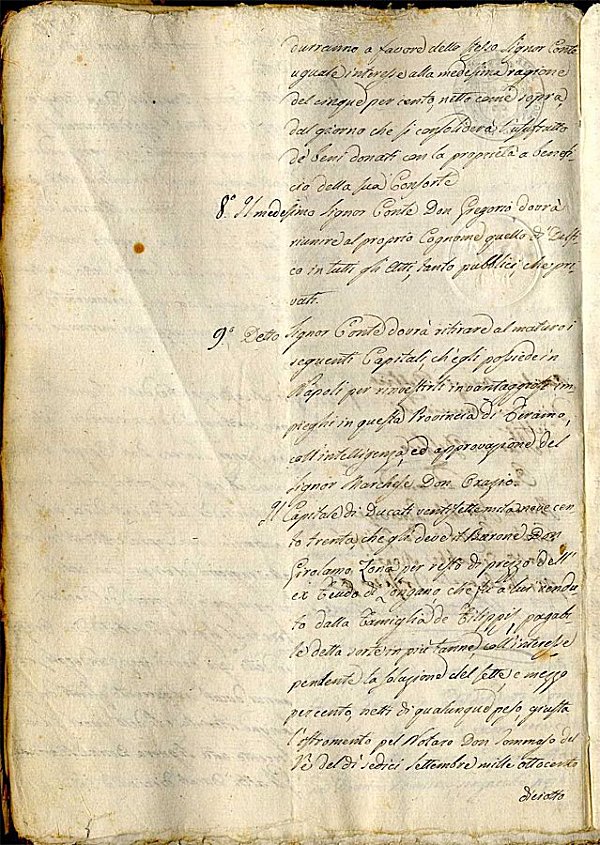 durranno a favore dello stesso Signor Conte
uguale interesse alla medesima ragione
del cinque per cento, netto come sopra,
dal giorno che si consoliderà l'usufrutto
de' beni donati con la proprietà a benefi-
cio della sua Consorte
8.° Il medesimo Signor Conte Don Gregorio dovrà
riunire al proprio Cognome quello di Delfi-
co in tutti gli Atti, tanto pubblici, che pri-
vati.
9.° Detto Signor Conte dovrà ritirare al maturo i
seguenti Capitali, ch'egli possiede in
Napoli per rinvestirli in vantaggiosi im-
pieghi in questa Provincia di Teramo,
coll'intelligenza, ed approvazione del
Signor Marchese Don Orazio.
Il Capitale di Ducati ventisettemila nove cen-
to trenta, che gli deve il Barone Don
Girolamo Zona per resto di prezzo dell'
ex Feudo di Longano, che fu a lui vendu-
to dalla Famiglia de Filippis, pagabi-
le detta sorte in più tanne, coll'interesse
pendente la solazione del sette e mezzo
per cento, netti di qualunque peso, giusta
l'istromento pel Notaro Don Tommaso del
Rè del dì sedici Settembre mille ottocento
diciotto